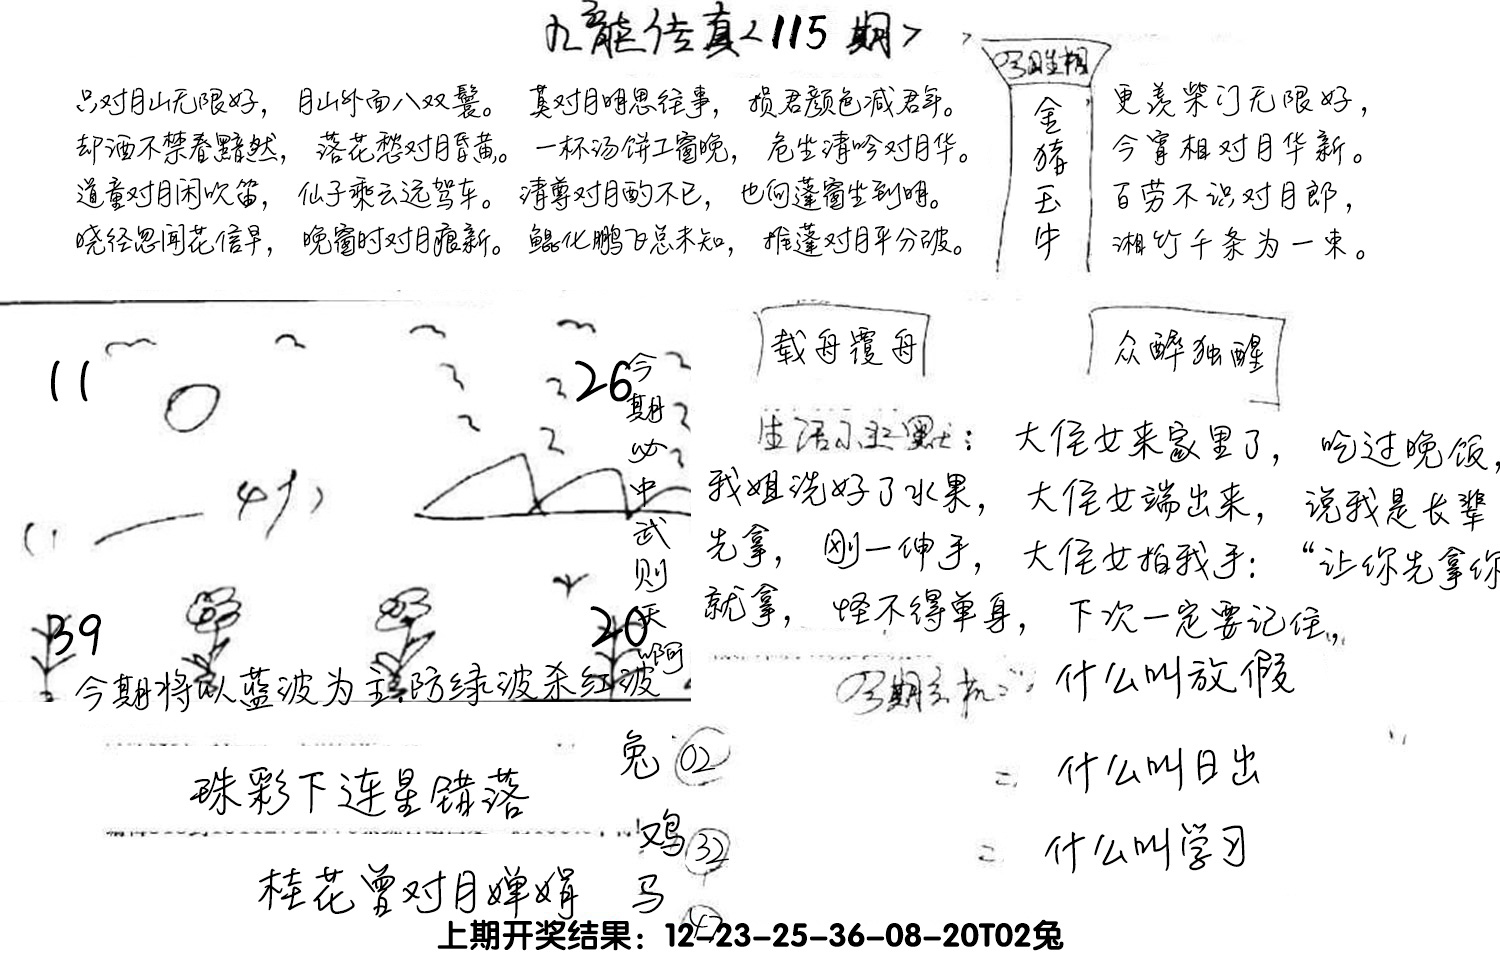 九龙传真<115期>
只对月山无限好，月山外面八双鬟。莫对月明思往事，损君颜色减君年。
却酒不禁春黯然，落花愁对月昏黄。一杯汤饼工窗晚，危坐清吟对月华。
道童对月闲吹笛，仙子乘云远驾车。清尊对月酌不已，也向蓬窗坐到明。
晓径忽闻花信早，晚窗时对月痕新。鲲化鹏飞总未知，推蓬对月平分破。
今期生相
金猪玉牛
更羡柴门无限好，
今宵相对月华新。
百劳不识对月郎，
湘竹千条为一束。
11
26
39
20
今期必中武则天啊
今期将以蓝波为主防绿波杀红波
载舟覆舟
众醉独醒
生活小幽默：大侄女来家里了，吃过晚饭，
我姐洗好了水果，大侄女端出来，说我是长辈
先拿，刚一伸手，大侄女拍我手：“让你先拿你
就拿，怪不得单身，下次一定要记住，，
今期玄机：什么叫放假
= 什么叫日出
= 什么叫学习
珠彩下连星错落
桂花曾对月婵娟
兔 02
鸡 32
马
上期开奖结果：12-23-25-36-08-20T02兔